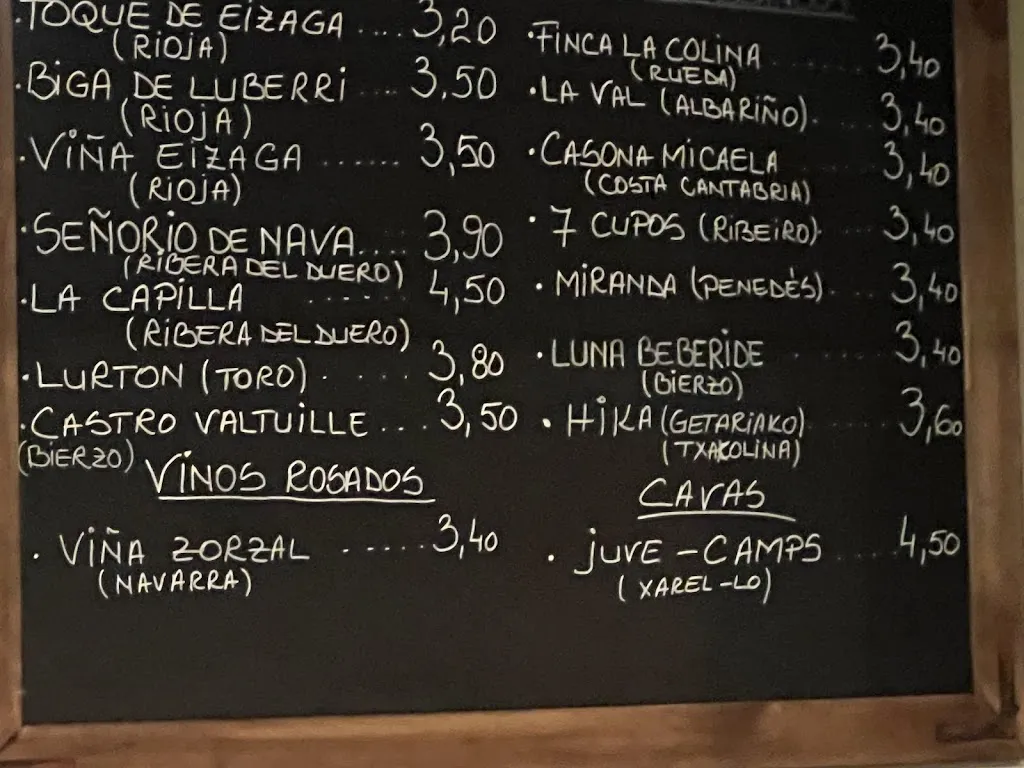 ·TOQUE DE EIZAGA .... 3,20
(RIOJA)
·BIGA DE LUBERRI .... 3,50
(RIOJA)
·VIÑA EIZAGA ...... 3,50
(RIOJA)
·SEÑORIO DE NAVA.... 3,90
(RIBERA DEL DUERO)
·LA CAPILLA ...... 4,50
(RIBERA DEL DUERO)
·LURTON (TORO) ..... 3,80
·CASTRO VALTUILLE ... 3,50
(BIERZO)
VINOS ROSADOS
· VIÑA ZORZAL ..... 3,40
(NAVARRA)
·FINCA LA COLINA .... 3,40
(RUEDA)
·LA VAL (ALBARIÑO). ... 3,40
·CASONA MICAELA .... 3,40
(COSTA CANTABRIA)
· 7 CUPOS (RIBEIRO). ... 3,40
· MIRANDA (PENEDÉS). ... 3,40
·LUNA BEBERIDE .... 3,40
(BIERZO)
· HIKA (GETARIAKO) .... 3,60
(TXAKOLINA)
CAVAS
· JUVE-CAMPS .... 4,50
(XAREL-LO)